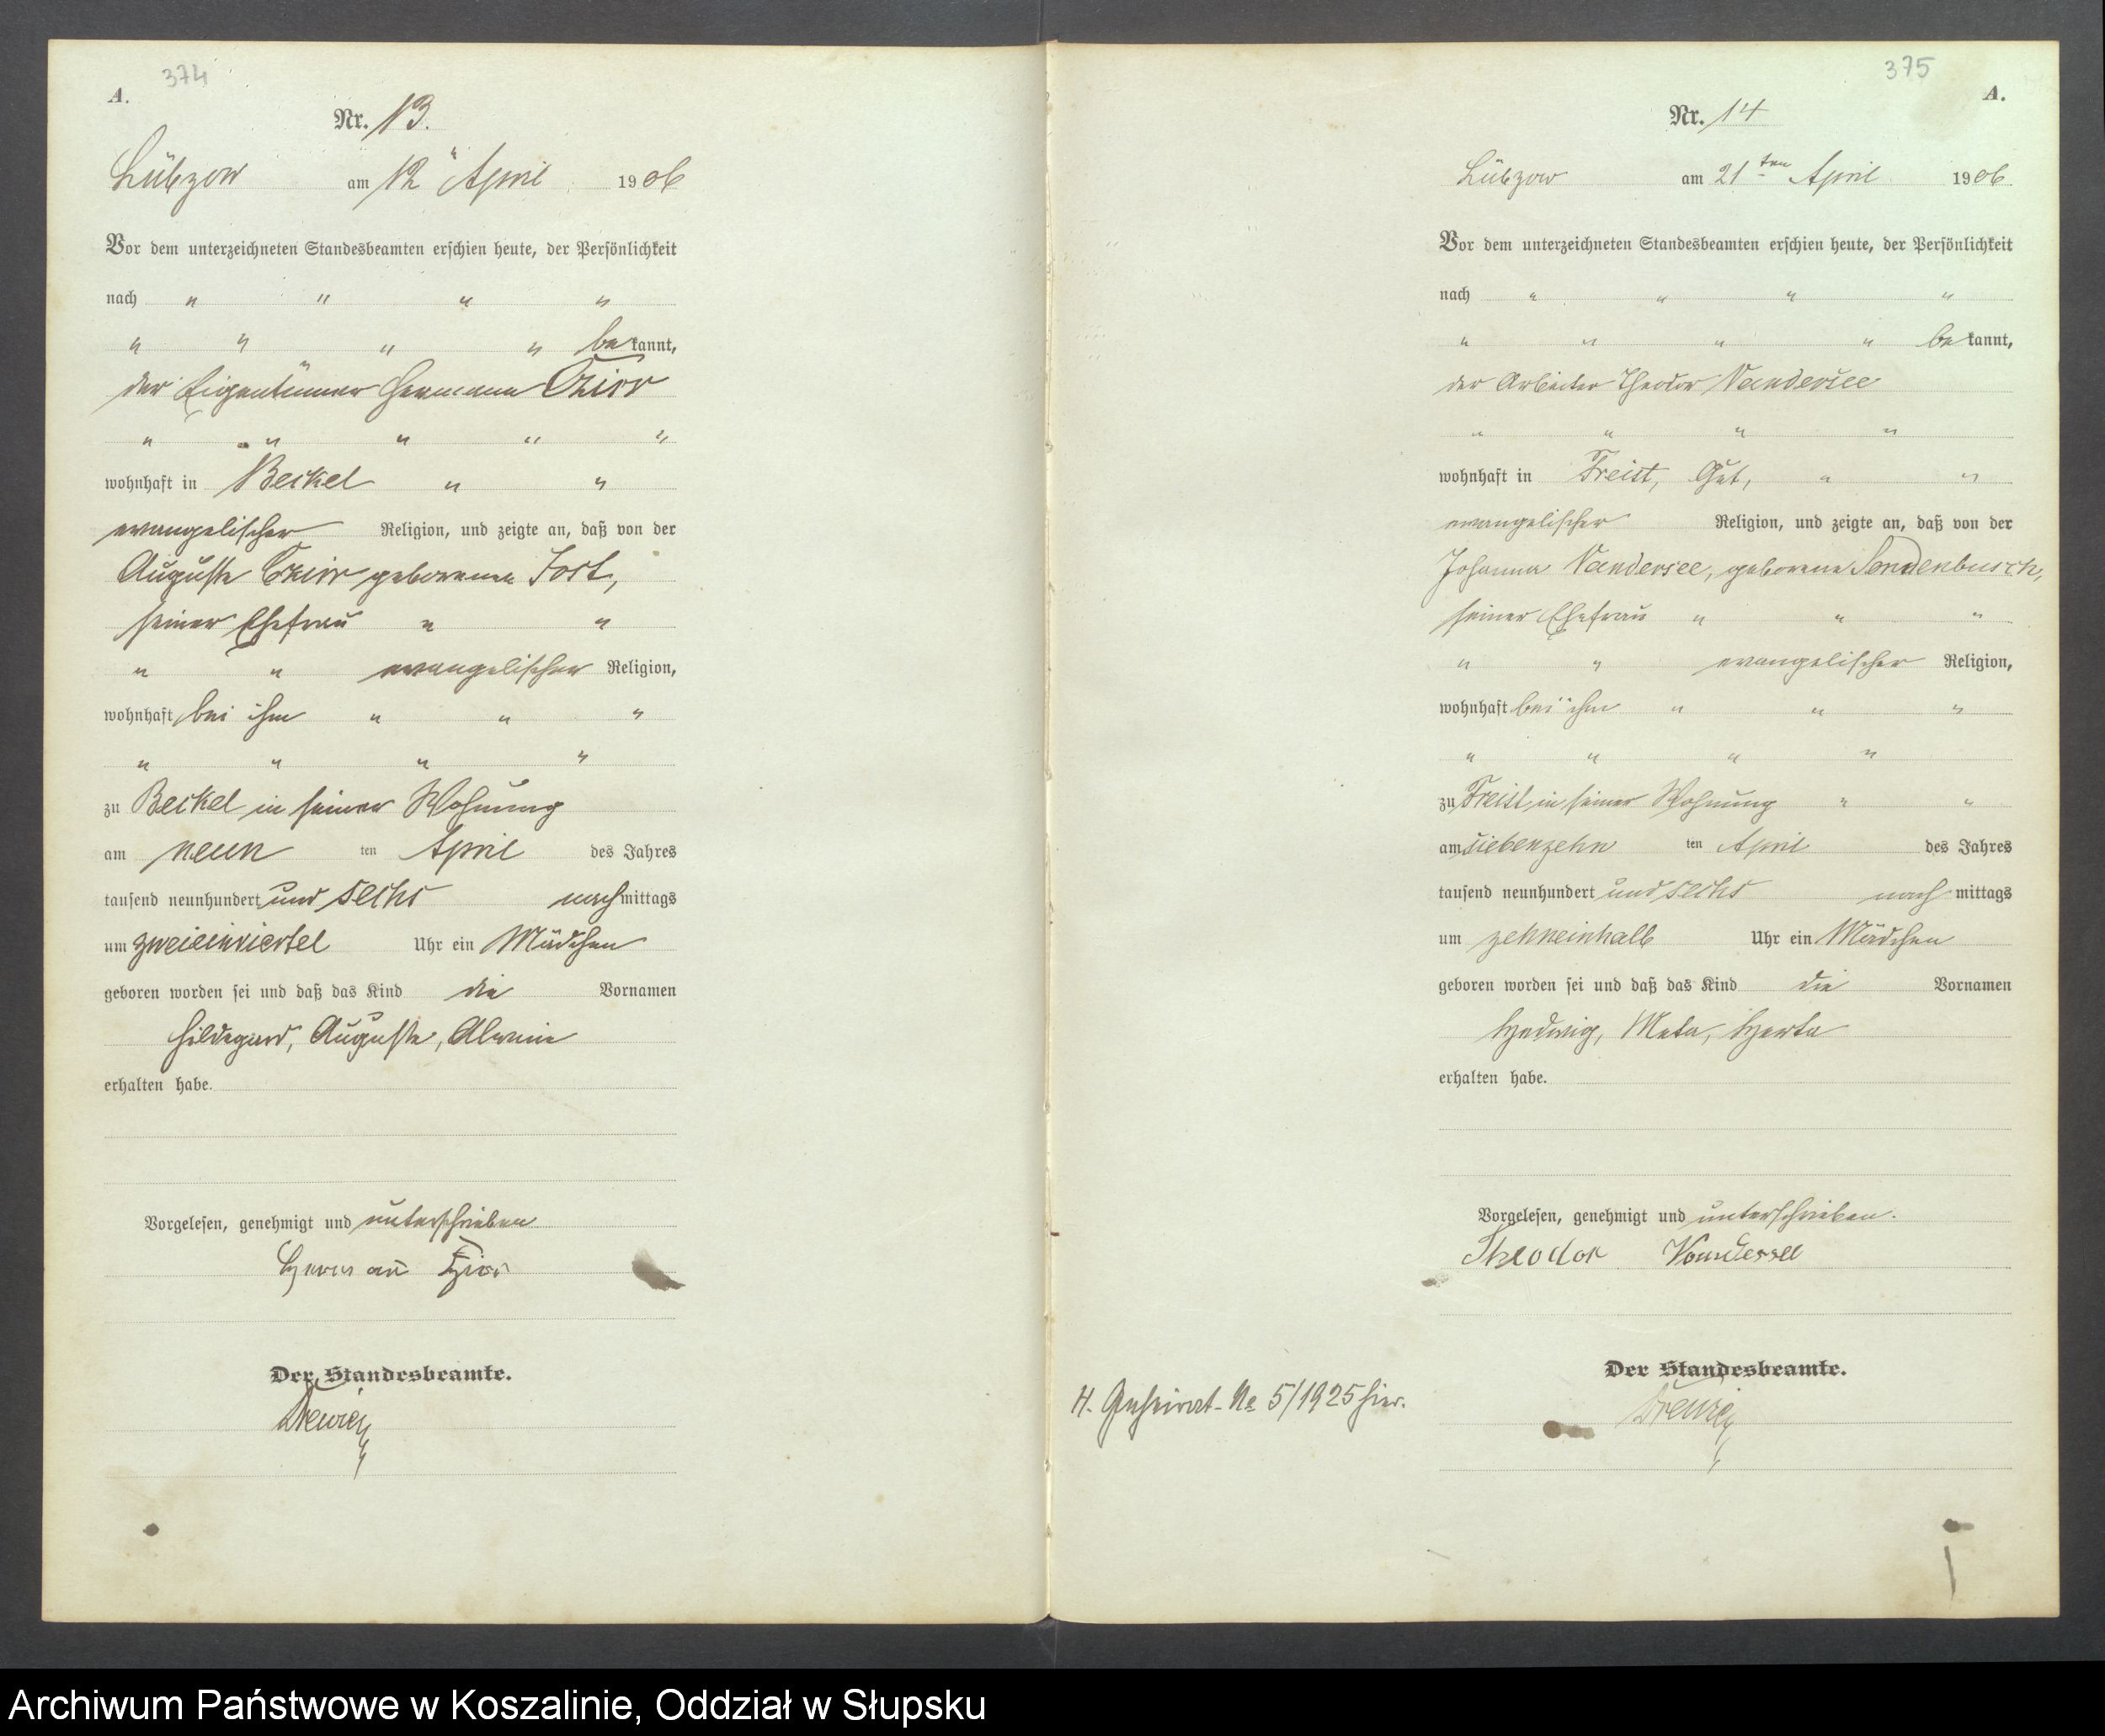 374
A.
Nr. 13.
Lübzow am 12" April 1906
Vor dem unterzeichneten Standesbeamten erschien heute, der Persönlichkeit
nach " " " "
" " " " bekannt,
der Eigentümer Hermann
" " " " "
wohnhaft in Beckel " "
evangelischer Religion, und zeigte an, daß von der
Auguste geborenen Jost,
seiner Ehefrau " "
" " evangelischer Religion,
wohnhaft bei ihm " " "
" " " "
zu Beckel in seiner Wohnung
am neun ten April des Jahres
tausend neunhundert und sechs nachmittags
um zweieinviertel Uhr ein Mädchen
geboren worden sei und daß das Kind die Vornamen
Hildegard, Auguste, Alwine
erhalten habe.
Vorgelesen, genehmigt und unterschrieben
Der Standesbeamte.
375
A.
Nr. 14
Lübzow am 21ten April 1906
Vor dem unterzeichneten Standesbeamten erschien heute, der Persönlichkeit
nach " " " "
" " " " bekannt,
der Arbeiter Theodor Vandersee
" " " "
wohnhaft in Freist, Gut, " "
evangelischer Religion, und zeigte an, daß von der
Johanna Vandersee, geborene
seiner Ehefrau " " "
" " evangelischer Religion,
wohnhaft bei ihm " " "
" " " "
zu Freist in seiner Wohnung " "
am siebenzehn ten April des Jahres
tausend neunhundert und sechs nach mittags
um zehneinhalb Uhr ein Mädchen
geboren worden sei und daß das Kind die Vornamen
Hedwig, Meta, Herta
erhalten habe.
Vorgelesen, genehmigt und unterschrieben.
Theodor Vandersee
H. No 5/1925 hier.
Der Standesbeamte.
Archiwum Państwowe w Koszalinie, Oddział w Słupsku